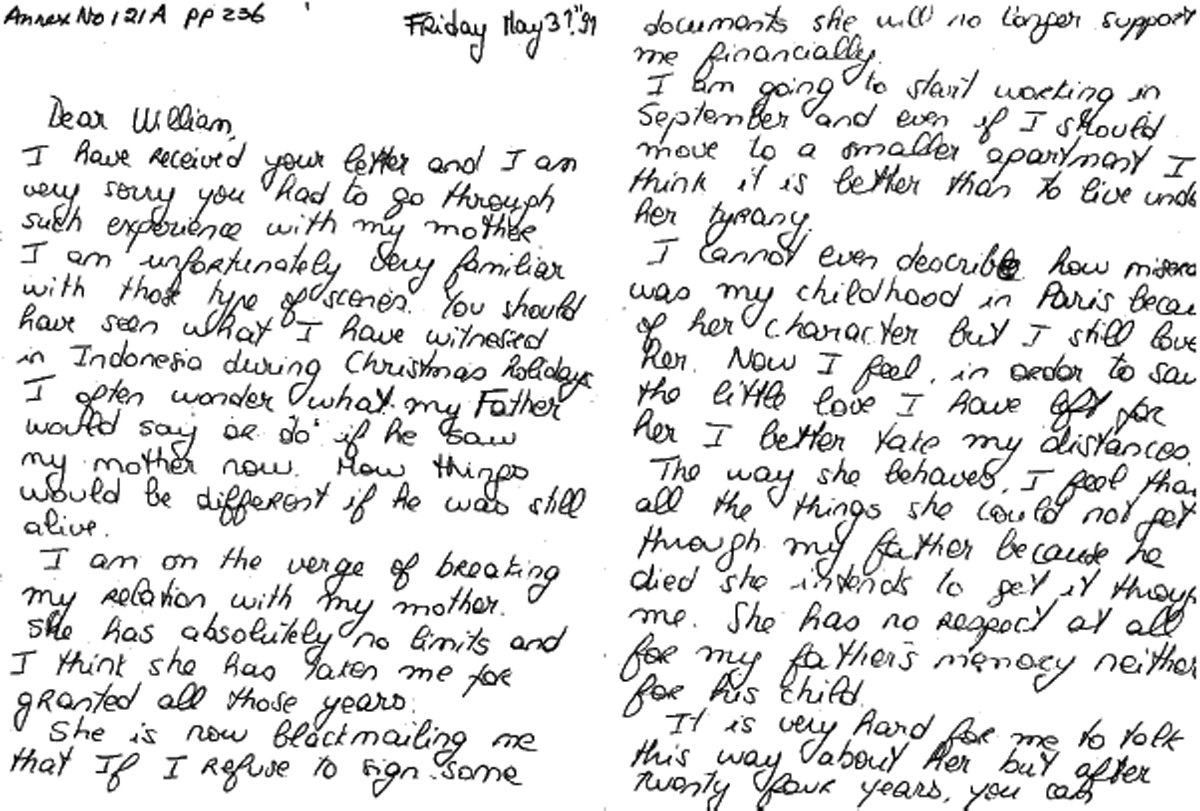 Annex No 121A pp 236
Friday May 31st 91
Dear William,
I have received your letter and I am
very sorry you had to go through
such experience with my mother.
I am unfortunately very familiar
with those type of scenes. You should
have seen what I have witnessed
in Indonesia during Christmas holidays
I often wonder what my Father
would say or do if he saw
my mother now. How things
would be different if he was still
alive.
I am on the verge of breaking
my relation with my mother.
She has absolutely no limits and
I think she has taken me for
granted all those years.
She is now blackmailing me
that If I refuse to sign some
documents she will no longer support
me financially.
I am going to start working in
September and even if I should
move to a smaller apartment I
think it is better than to live unde
her tyrany.
I cannot even describe how misera
was my childhood in Paris becau
of her character but I still love
her. Now I feel, in order to sav
the little love I have left for
her I better take my distances.
The way she behaves, I feel than
all the things she could not get
through my father because he
died she intends to get it throug
me. She has no respect at all
for my father's memory neither
for his child.
It is very hard for me to talk
this way about her but after
twenty four years, you can